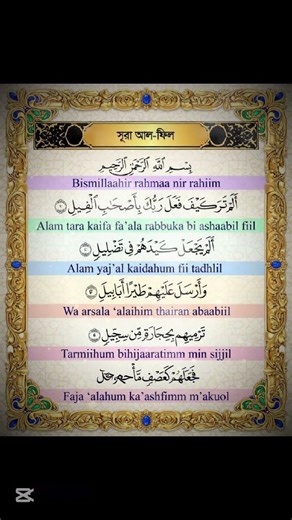 সূরা আল-ফিল
بِسْمِ اللَّهِ الرَّحْمَٰنِ الرَّحِيمِ
Bismillaahir rahmaa nir rahiim
أَلَمْ تَرَ كَيْفَ فَعَلَ رَبُّكَ بِأَصْحَابِ الْفِيلِ
Alam tara kaifa fa'ala rabbuka bi ashaabil fiil
أَلَمْ يَجْعَلْ كَيْدَهُمْ فِي تَضْلِيلٍ
Alam yaj'al kaidahum fii tadhlil
وَأَرْسَلَ عَلَيْهِمْ طَيْرًا أَبَابِيلَ
Wa arsala 'alaihim thairan abaabiil
تَرْمِيهِمْ بِحِجَارَةٍ مِّن سِجِّيلٍ
Tarmiihum bihijaaratimm min sijjil
فَجَعَلَهُمْ كَعَصْفٍ
Faja 'alahum ka'ashfimm m'akuol